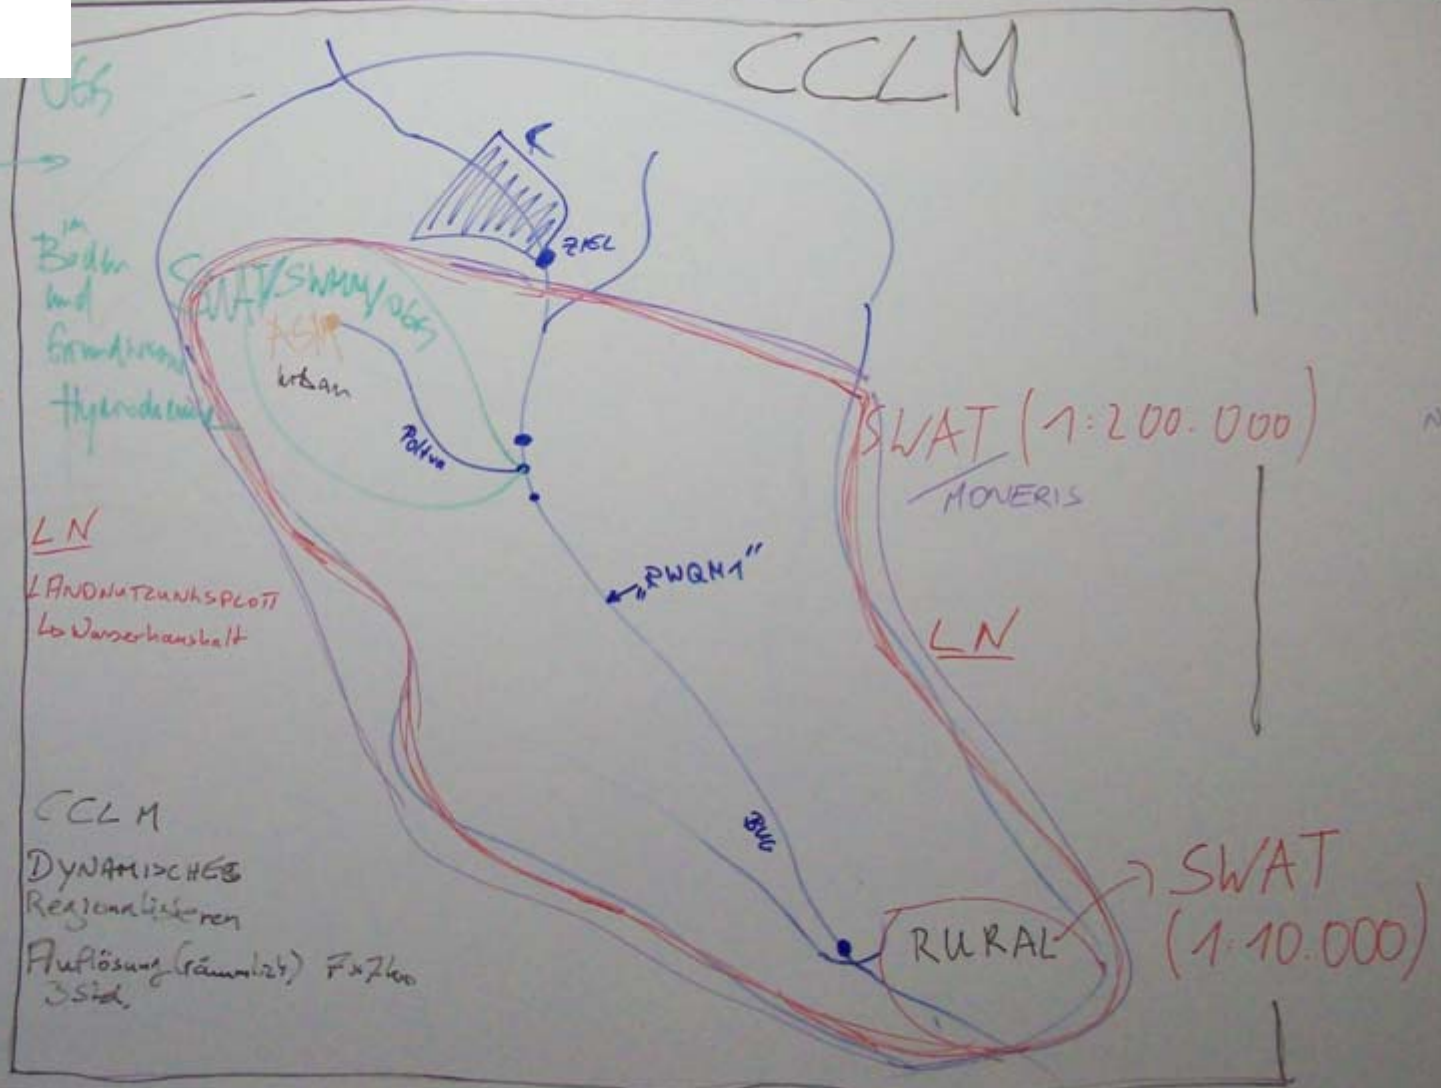 CCLM
OGS
ZIEL
im
Boden
und
SWAT/SWMM/OGS
ASM
urban
Poltva
SWAT (1:200.000)
MONERIS
LN
LANDNUTZUNGSPLOTT
Wasserhaushalt
"RWQM1"
LN
BUG
CCLM
DYNAMISCHES
Regionalisieren
Auflösung (räumlich) 7x7km
3 Std.
RURAL
SWAT
(1:10.000)